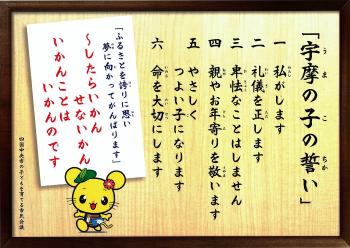 「宇摩の子の誓い」
一 私がします
二 礼儀を正します
三 卑怯なことはしません
四 親やお年寄りを敬います
五 やさしく
つよい子になります
六 命を大切にします
「ふるさとを誇りに思い
夢に向かってがんばります」
～したらいかん
せないかん
いかんことは
いかんのです
四国中央市の子どもを育てる市民会議